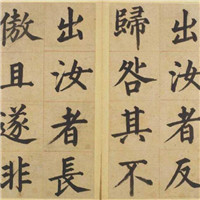 出汝者反
歸咎其不
出汝者長
傲且遂非